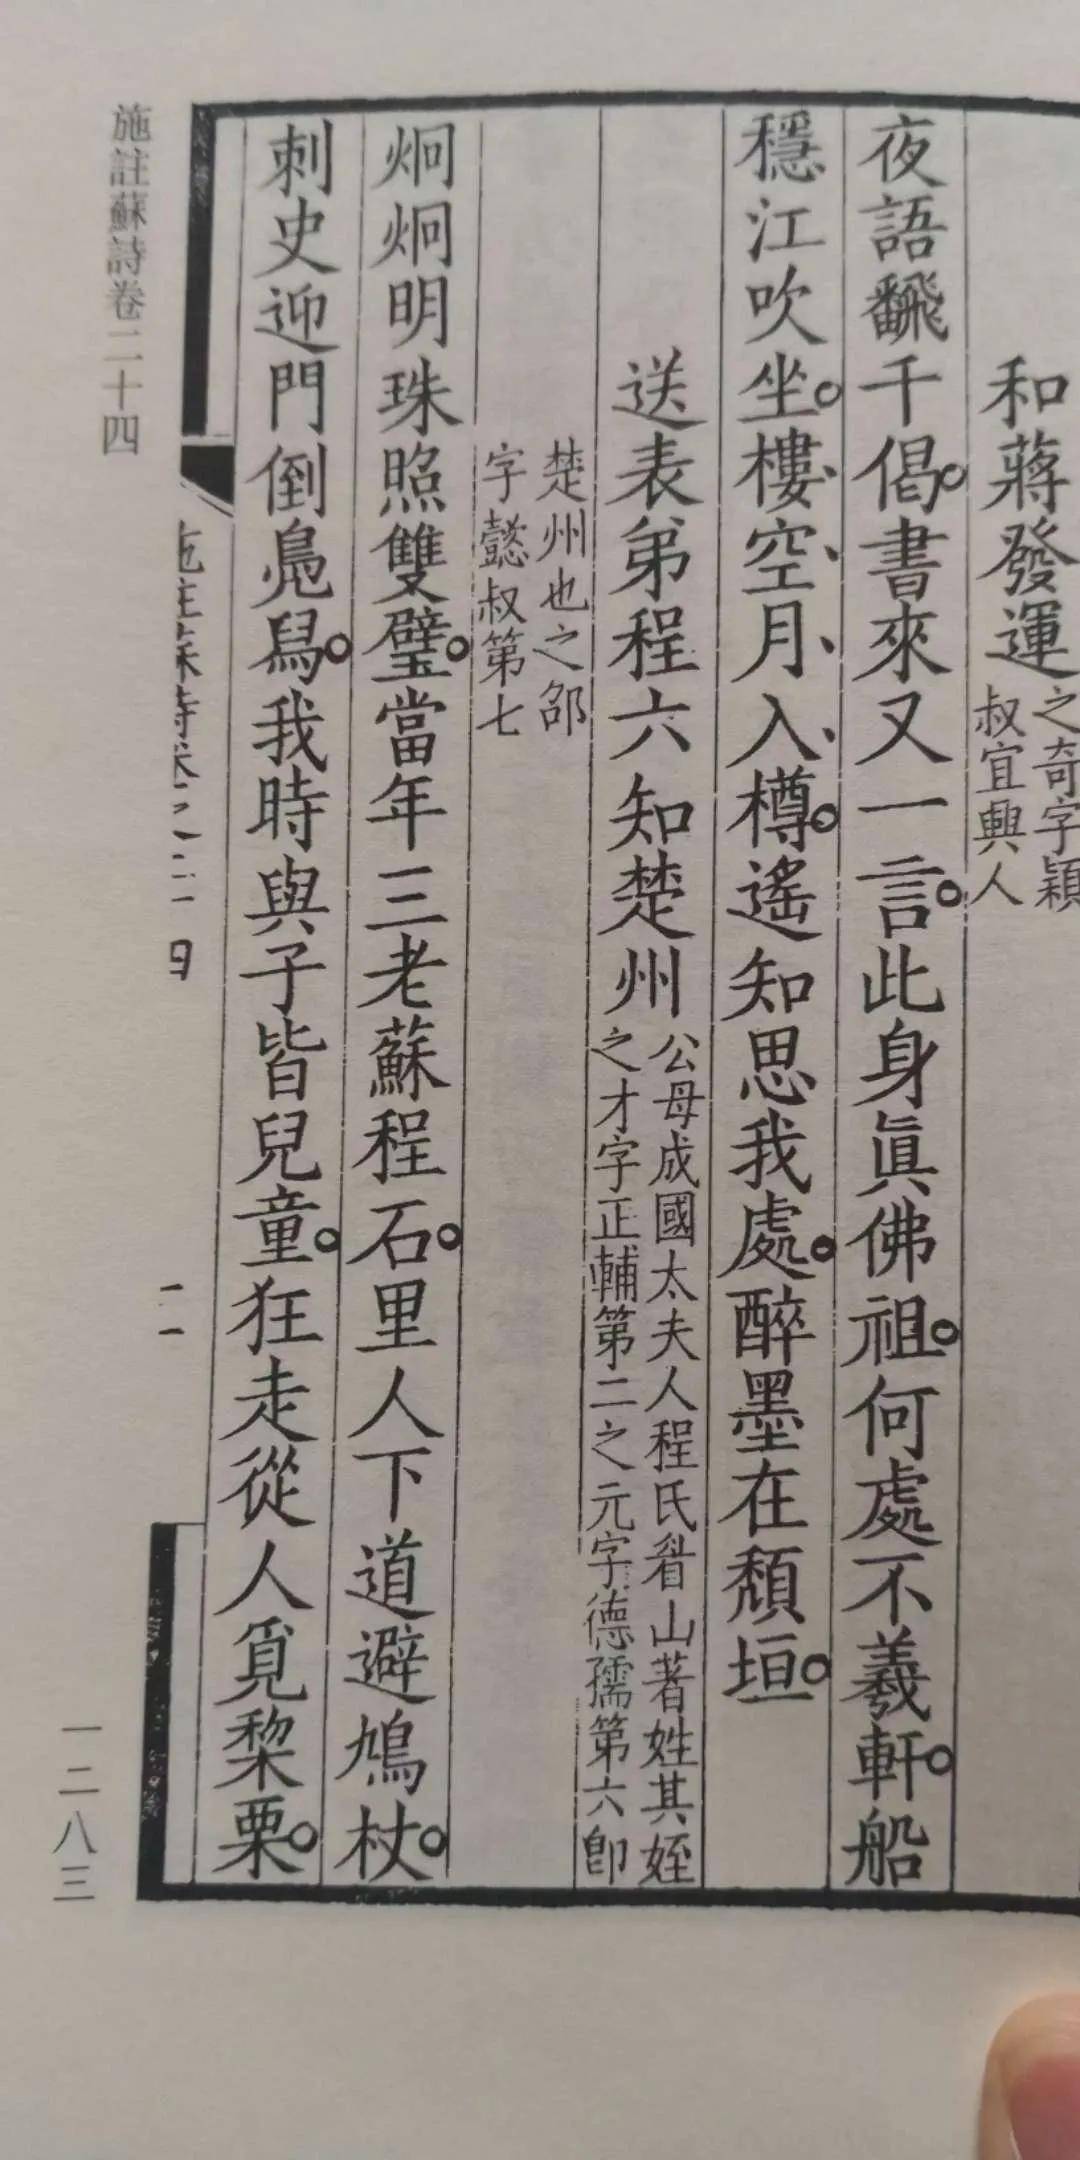 和蔣發運
之奇字穎
叔宜興人
夜語飜千偈書來又一言此身眞佛祖何處不羲軒船
穩江吹坐樓空月入樽遙知思我處醉墨在頹垣
送表弟程六知楚州
公母成國太夫人程氏眉山著姓其姪
之才字正輔第二之元字德孺第六卽
楚州也之邵
字懿叔第七
炯炯明珠照雙璧當年三老蘇程石里人下道避鳩杖
刺史迎門倒鳧舄我時與子皆兒童狂走從人覓棃栗
施註蘇詩卷之二十四
二
施註蘇詩卷二十四
一二八三